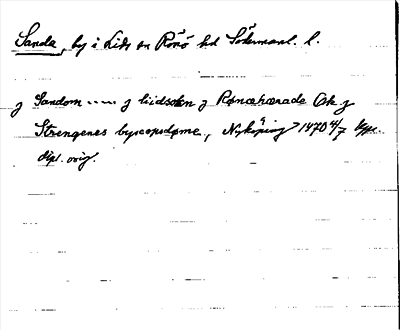 Sanda, by i Lids sn Rönö hd Södermanl. l.
j Sandom ..... j liidsokn j Rønæhærade Ok j
Strengenes byscopsdøme, Nyköping 1470 4/7
dipl. orig.